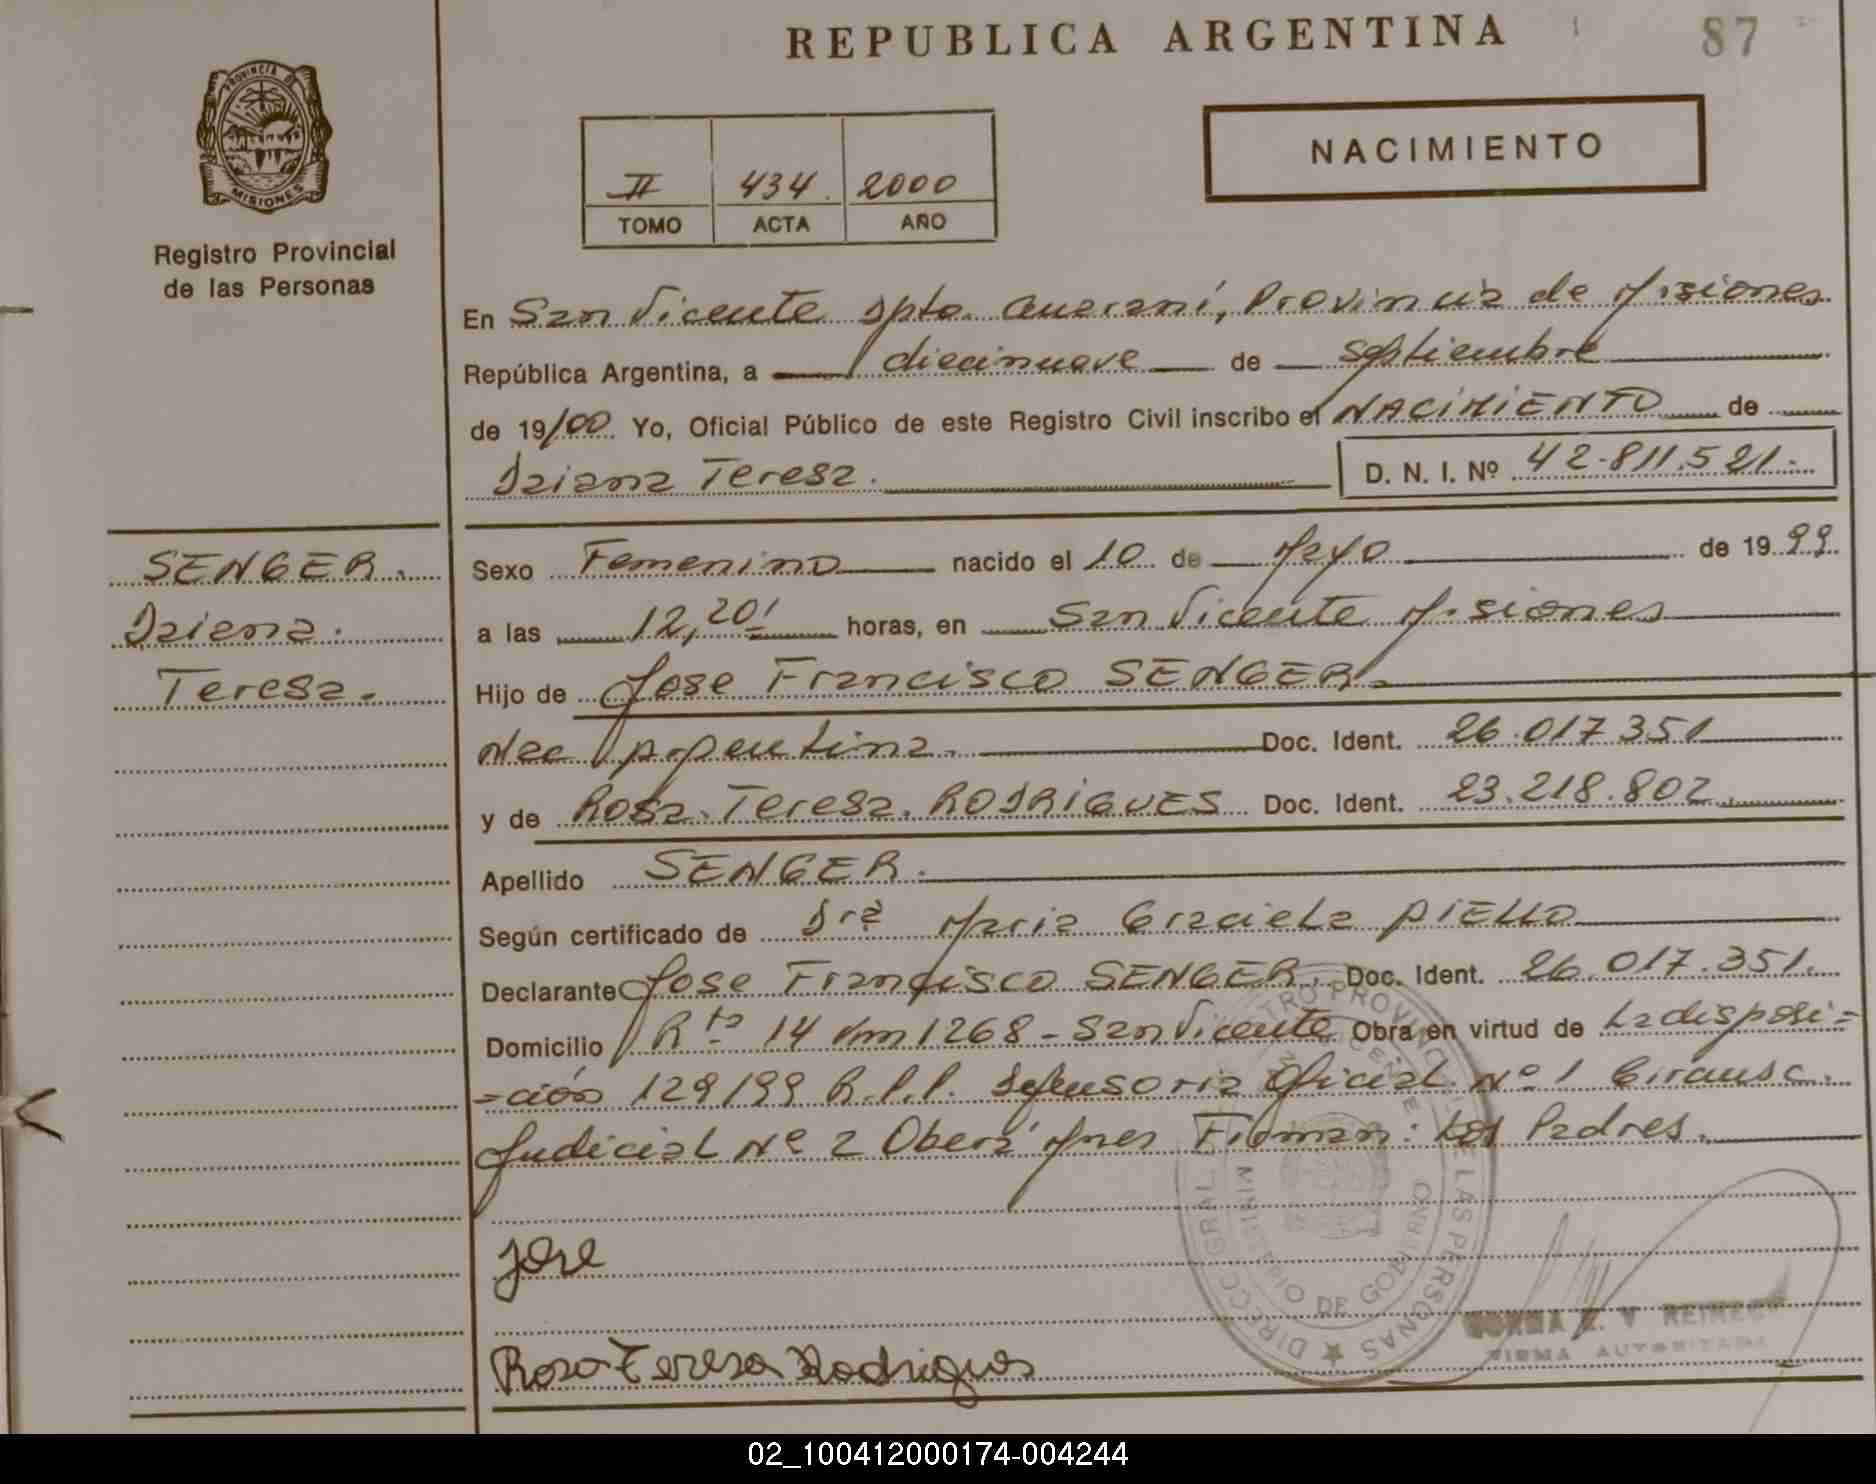 REPUBLICA ARGENTINA
87
PROVINCIA DE
MISIONES
Registro Provincial
de las Personas
NACIMIENTO
II 434. 2000
TOMO ACTA AÑO
En San Vicente Dpto. Guaraní, Provincia de Misiones.
República Argentina, a diecinueve de septiembre
de 19/00. Yo, Oficial Público de este Registro Civil inscribo el NACIMIENTO de
Daiana Teresa. D. N. I. Nº 42.811.521.-
SENGER.
Daiana.
Teresa.
Sexo Femenino nacido el 10 de Mayo de 1999.
a las 12,20' horas, en San Vicente Misiones
Hijo de Jose Francisco SENGER.
Nac Argentina. Doc. Ident. 26.017.351
y de Rosa. Teresa. RODRIGUES Doc. Ident. 23.218.802.
Apellido SENGER.
Según certificado de Dra Maria Graciela AIELLO
Declarante Jose Francisco SENGER. Doc. Ident. 26.017.351.
Domicilio Rta 14 Km 1268 - San Vicente Obra en virtud de La disposi=
=ción 129/99 R.P.P. Defensoria Oficial Nº 1 Circunsc.
Judicial Nº 2 Oberá Mnes Firman: Los Padres.
Jose
Rosa Teresa Rodrigues
DIRECC. GRAL. REGISTRO PROVINCIAL DE LAS PERSONAS
MINISTERIO DE GOBIERNO
SAN VICENTE
FIRMA AUTORIZADA
02_100412000174-004244